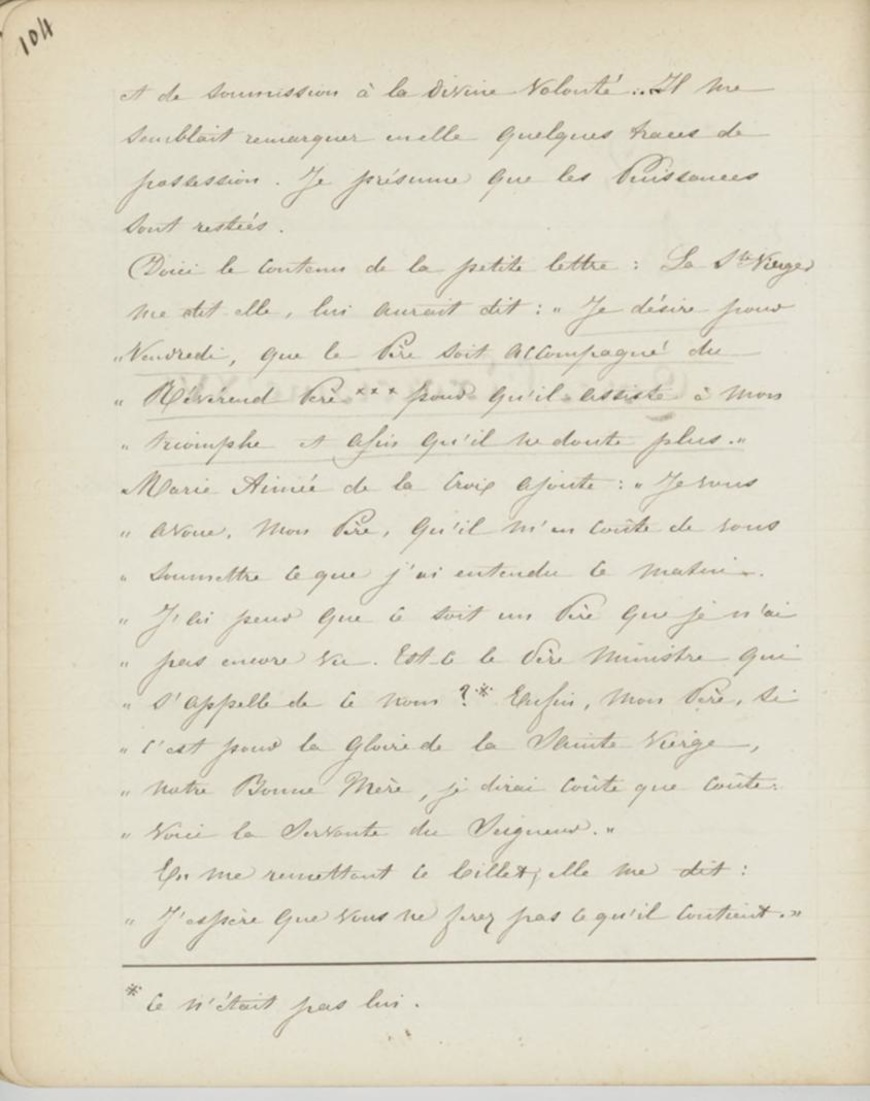 104
et de soumission à la divine Volonté... Il me
semblait remarquer en elle quelques traces de
possession. Je présume que les Puissances
sont restées.
Voici le contenu de la petite lettre : La Ste Vierge,
me dit-elle, lui aurait dit : " Je désire pour
" Vendredi, que le Père soit accompagné du
" Révérend Père *** pour qu'il assiste à mon
" triomphe et afin qu'il ne doute plus. "
Marie Aimée de la Croix ajoute : " Je vous
" avoue, mon Père, qu'il m'en coûte de vous
" soumettre ce que j'ai entendu ce matin.
" J'ai peur que ce soit un Père que je n'ai
" pas encore vu. Est-ce le Père Ministre qui
" s'appelle de ce nom ?* Enfin, mon Père, si
" c'est pour la gloire de la Sainte Vierge,
" notre Bonne Mère, je dirai coûte que coûte :
" Voici la Servante du Seigneur. "
En me remettant ce billet, elle me dit :
" J'espère que vous ne ferez pas ce qu'il contient. "
* Ce n'était pas lui.